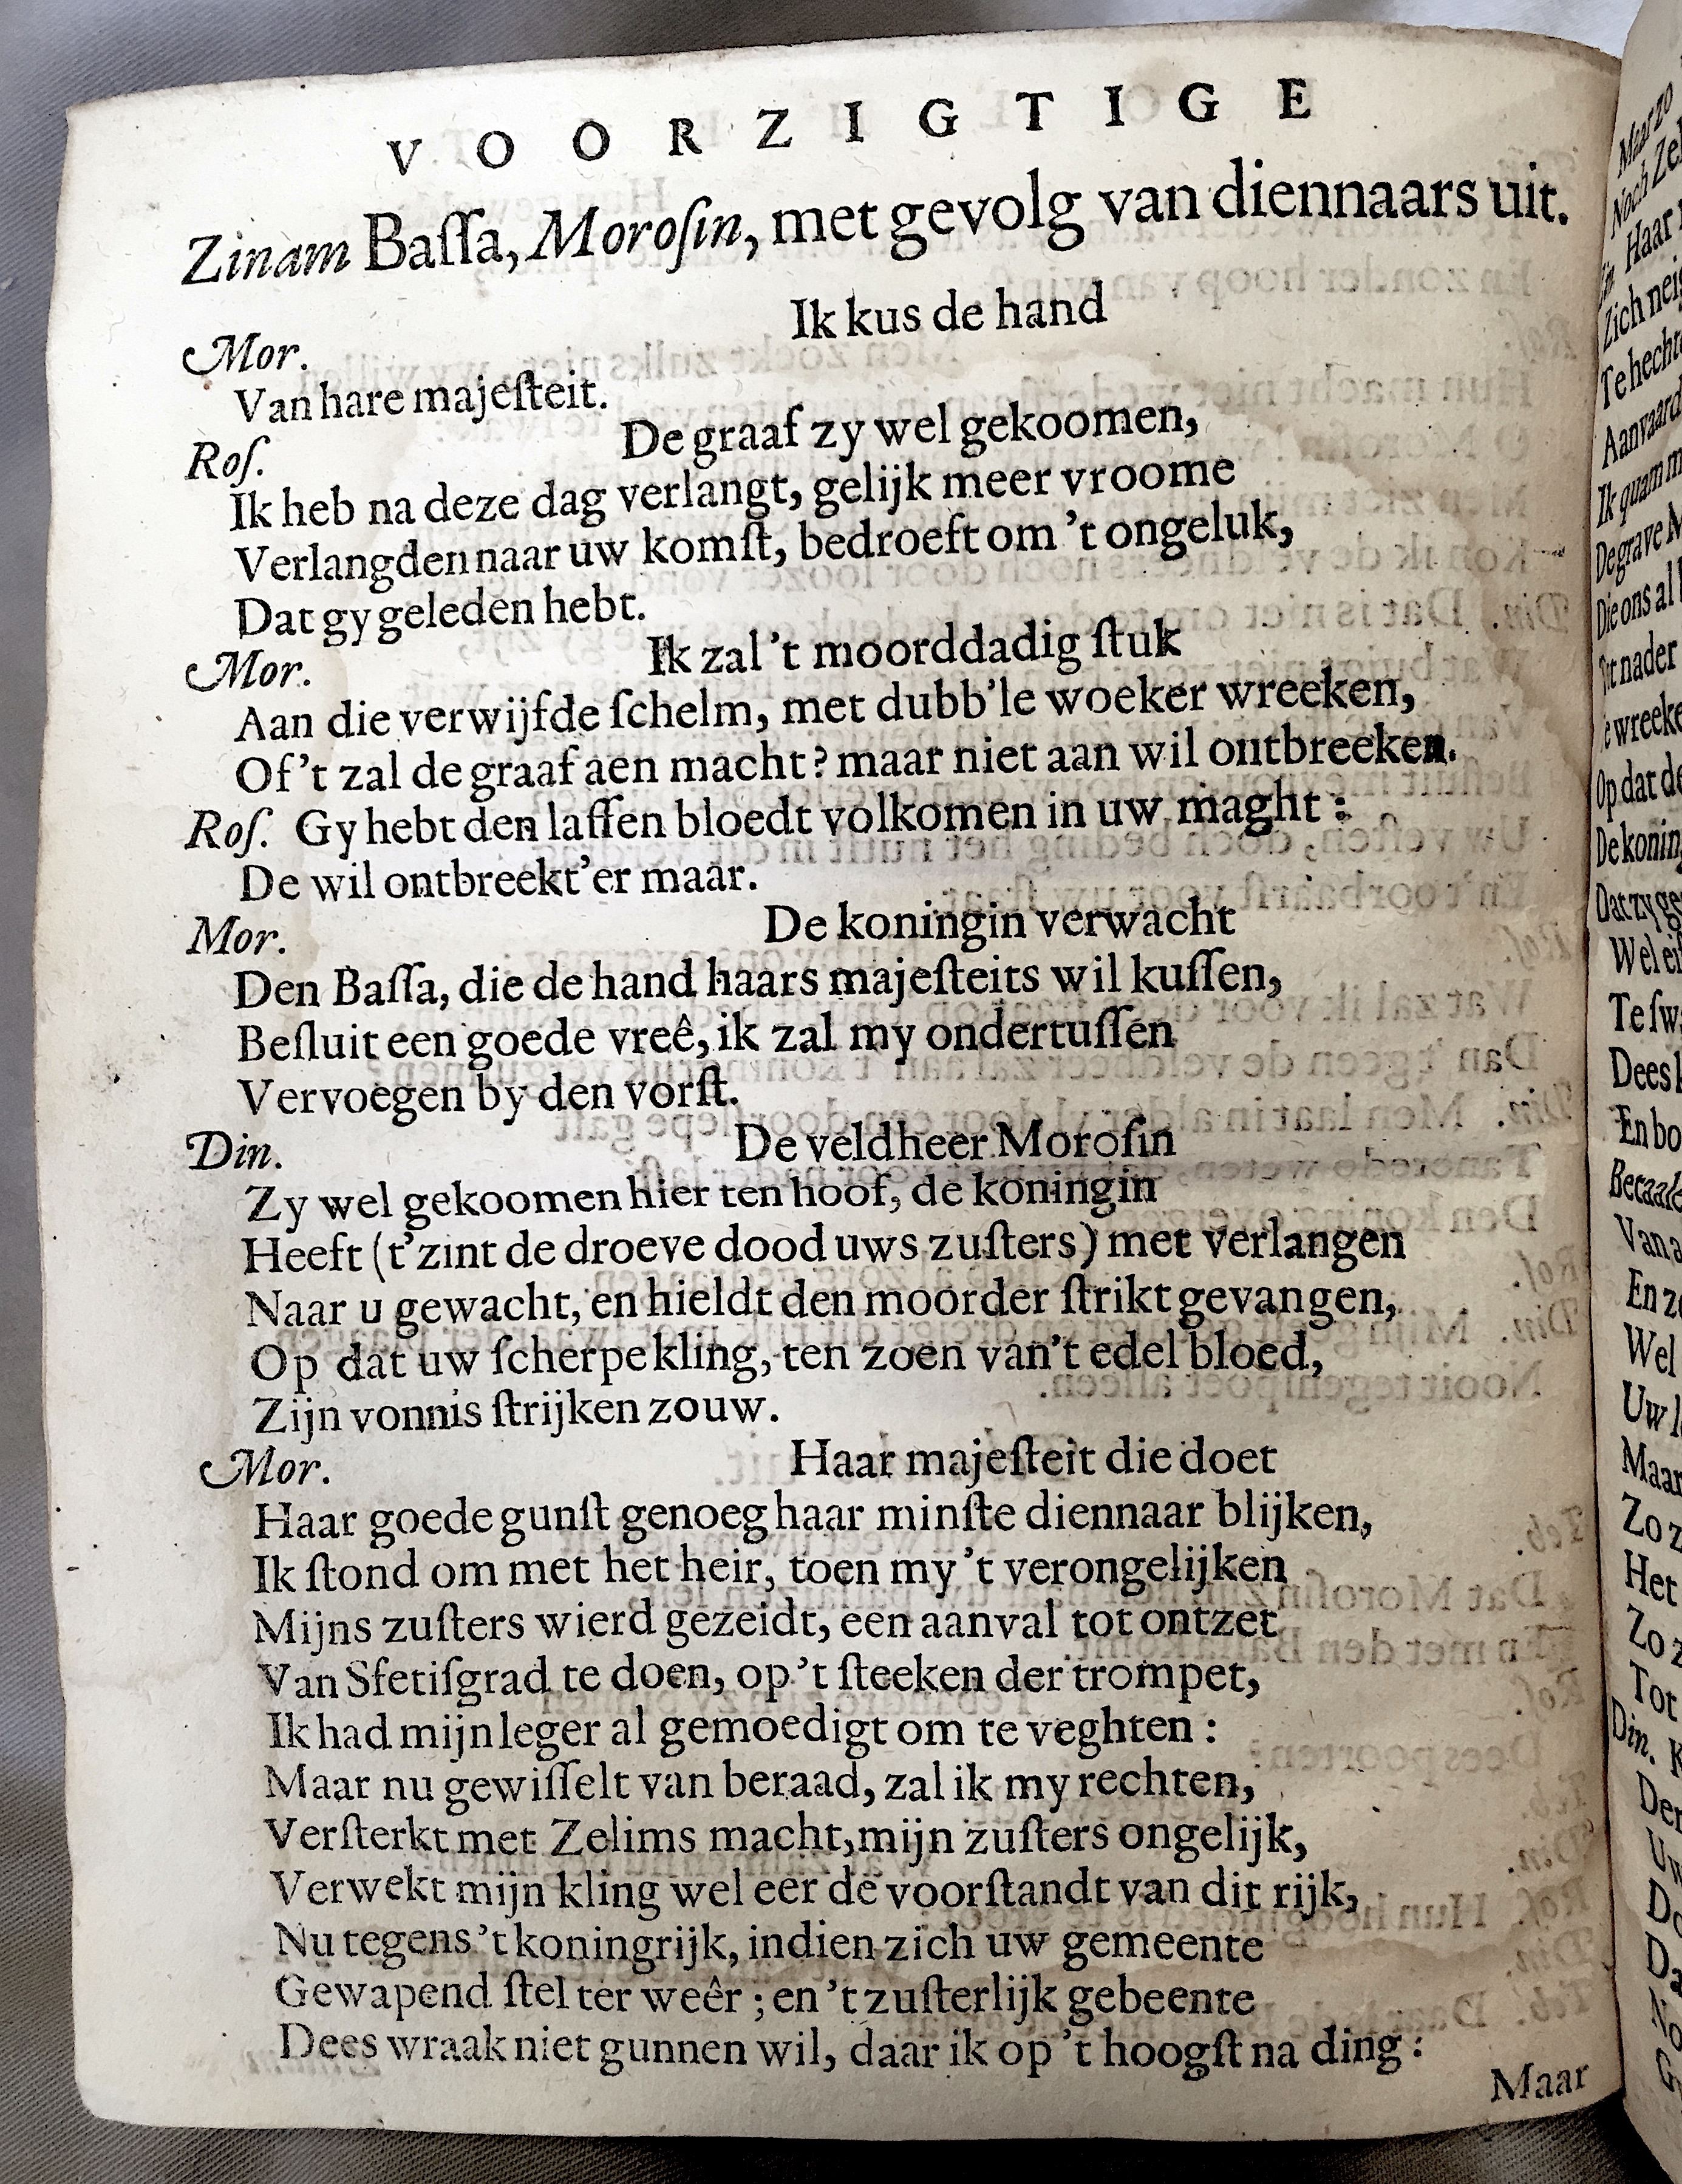 VOORZIGTIGE
Zinam Baſſa, Moroſin, met gevolg van diennaars uit.
Ik kus de hand
Mor.
Van hare majeſteit.
De graaf zy wel gekoomen,
Roſ.
Ik heb na deze dag verlangt, gelijk meer vroome
Verlangden naar uw komſt, bedroeft om 't ongeluk,
Dat gy geleden hebt.
Ik zal 't moorddadig ſtuk
Mor.
Aan die verwijfde ſchelm, met dubb'le woeker wreeken,
Of 't zal de graaf aen macht? maar niet aan wil ontbreeken.
Roſ. Gy hebt den laffen bloedt volkomen in uw maght:
De wil ontbreekt'er maar.
De koningin verwacht
Mor.
Den Baſſa, die de hand haars majeſteits wil kuſſen,
Beſluit een goede vreê, ik zal my ondertuſſen
Vervoegen by den vorſt.
De veldheer Moroſin
Din.
Zy wel gekoomen hier ten hoof, de koningin
Heeft (t'zint de droeve dood uws zuſters) met verlangen
Naar u gewacht, en hieldt den moorder ſtrikt gevangen,
Op dat uw ſcherpe kling, ten zoen van't edel bloed,
Zijn vonnis ſtrijken zouw.
Haar majeſteit die doet
Mor.
Haar goede gunſt genoeg haar minſte diennaar blijken,
Ik ſtond om met het heir, toen my 't verongelijken
Mijns zuſters wierd gezeidt, een aanval tot ontzet
Van Sfetiſgrad te doen, op 't ſteeken der trompet,
Ik had mijn leger al gemoedigt om te veghten:
Maar nu gewiſſelt van beraad, zal ik my rechten,
Verſterkt met Zelims macht, mijn zuſters ongelijk,
Verwekt mijn kling wel eer de voorſtandt van dit rijk,
Nu tegens 't koningrijk, indien zich uw gemeente
Gewapend ſtel ter weêr; en 't zuſterlijk gebeente
Dees wraak niet gunnen wil, daar ik op 't hoogſt na ding:
Maar